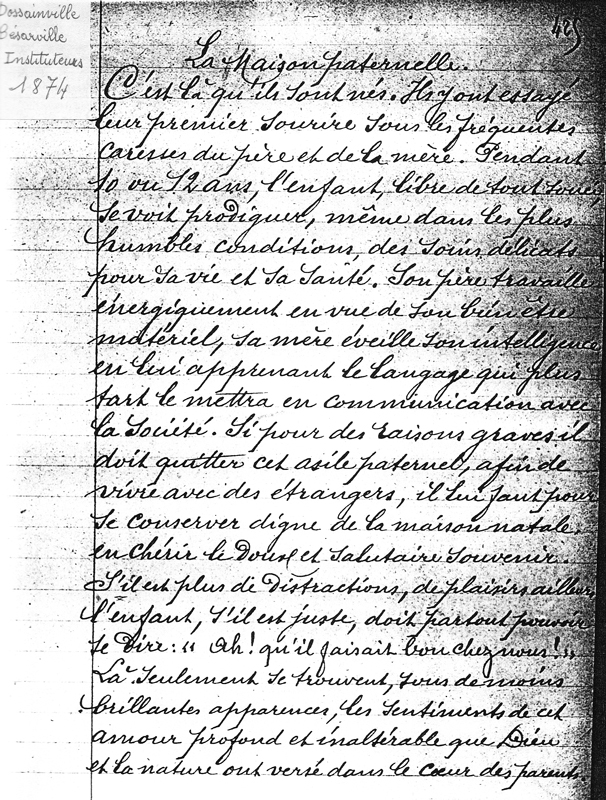 Dossainville
Césarville
Instituteurs
1874
425
La Maison paternelle.
C'est là qu'ils sont nés. Ils y ont essayé
leur premier sourire sous les fréquentes
caresses du père et de la mère. Pendant
10 ou 12 ans, l'enfant, libre de tout souci,
se voit prodiguer, même dans les plus
humbles conditions, des soins délicats
pour sa vie et sa santé. Son père travaille
énergiquement en vue de son bien être
matériel, sa mère éveille son intelligence
en lui apprenant le langage qui plus
tart le mettra en communication avec
la Société. Si pour des raisons graves il
doit quitter cet asile paternel, afin de
vivre avec des étrangers, il lui faut pour
se conserver digne de la maison natale,
en chérir le doux et salutaire souvenir.
S'il est plus de distractions, de plaisirs ailleurs,
l'enfant, s'il est juste, doit partout pouvoir
se dire: « Ah! qu'il faisait bon chez nous! »
Là seulement se trouvent, sous de moins
brillantes apparences, les sentiments de cet
amour profond et inaltérable que Dieu
et la nature ont versé dans le cœur des parents